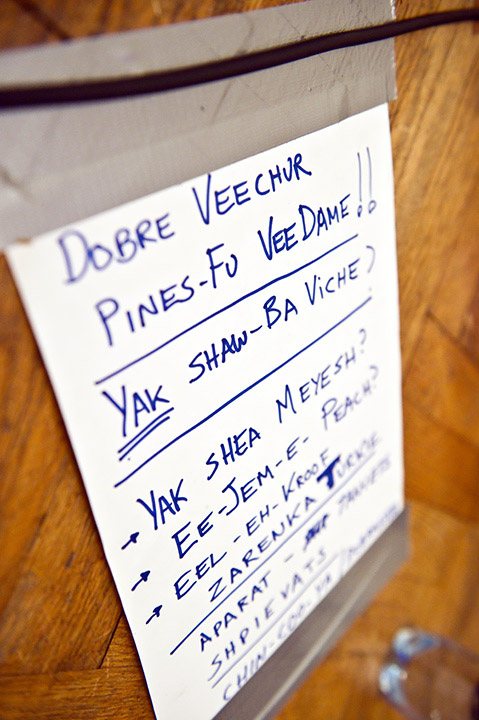 DOBRE VEECHUR
PINES-FU VEEDAME!!
YAK SHAW-BA VICHE?
YAK SHEA MEYESH?
→ EE-JEM-E- PEACH?
→ EEL-EH-KROOF
→ ZARENKA TURKIE
APARAT -
SHPIEVATS